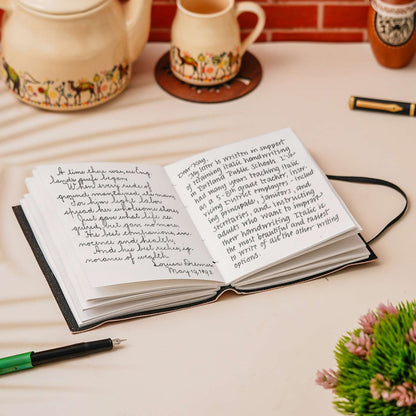 A time there was, ere Eng-
lands griefs began,
When every rood of
ground maintained its man;
For him light labor
spread her wholesome store,
Just gave what life re-
quired, but gave no more;
His best companions, in-
nocence and health;
And his best riches, ig-
norance of wealth.
May 19, 1922
Dear Kay,
My letter is written in support
of retaining Italic handwriting
in Portland Public Schools. I've
had many years teaching Italic
as a 5-6th grade teacher, inser-
vicing Dist. employees: includ-
ing principals, janitors, sec-
retaries, and instructing
adults who want to improve
their handwriting. Italic is
the most beautiful and easiest
to write of all the other writing
options.